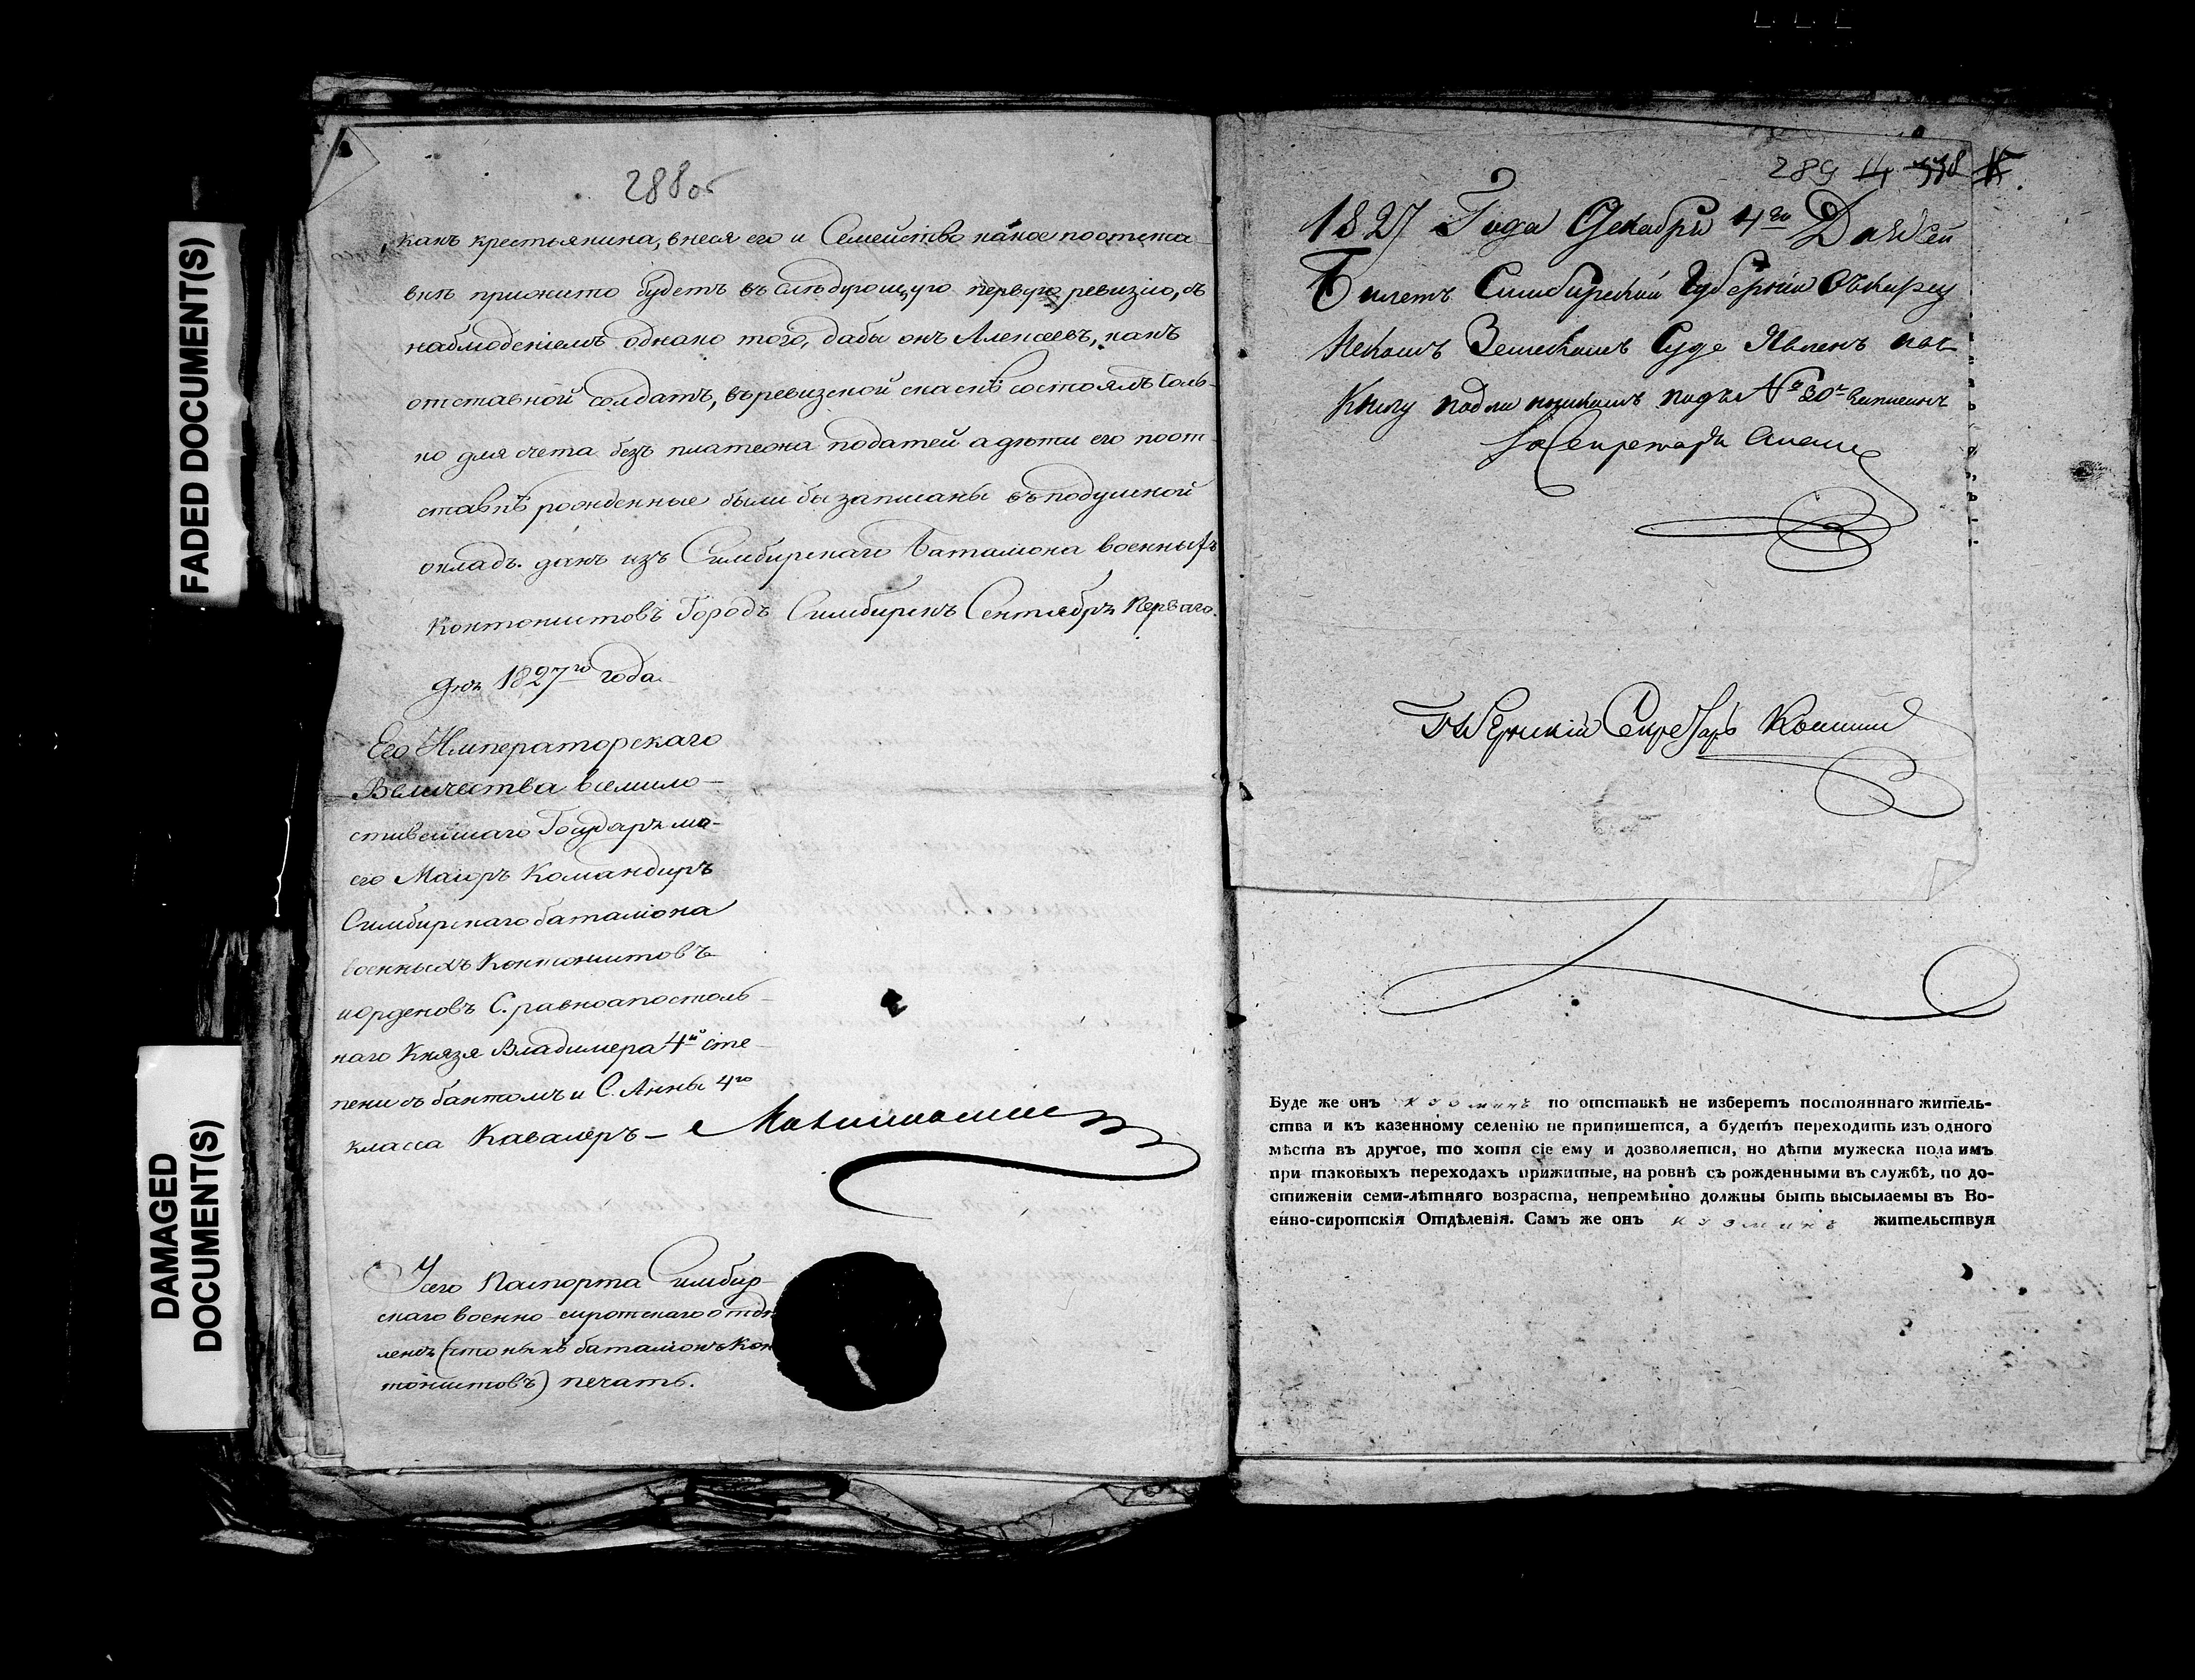 FADED DOCUMENT(S)
DAMAGED
DOCUMENT(S)
288об
какъ крестьянина, внеся его и Семейство какое по отста-
вкѣ прижито будетъ въ слѣдующую первую ревизію, съ
наблюденіемъ однако того, дабы онъ Алексеевъ, какъ
отставной солдатъ, въ ревизской скаскѣ состоялъ толь-
ко для счета безъ платежа податей а дѣти его по от
ставкѣ рожденные были бы записаны въ подушной
окладъ. данъ изъ Симбирскаго Баталіона военныхъ
Кантонистовъ Городъ Симбирскъ Сентября Перваго
дня 1827го года.
Его Императорскаго
Величества всемило-
стивейшаго Государя мо-
его Маіоръ Командиръ
Симбирскаго баталіона
военныхъ Кантонистовъ
и орденовъ С. равноапостоль-
наго Князя Владимера 4й сте-
пени съ бантомъ и С. Анны 4го
класса Кавалеръ —
У сего Паспорта Симбир-
скаго военно-сиротскаго отдѣ
ленія (что нынѣ баталіонъ Кан
тонистовъ) печать.
289 14 338
1827 Года Декабря 4го Дня Сей
Билетъ Симбирской Губерніи
Земскомъ Суде Явленъ
Книгу подлинникомъ подъ № 30 записанъ
Секретарь
Губернскій Секретарь
Буде же онъ Кузминъ по отставкѣ не изберетъ постояннаго житель-
ства и къ казенному селенію не припишется, а будетъ переходить изъ одного
мѣста въ другое, то хотя сіе ему и дозволяется, но дѣти мужеска пола имъ
при таковыхъ переходахъ прижитые, на ровнѣ съ рожденными въ службѣ, по до-
стиженіи семи-лѣтняго возраста, непремѣнно должны быть высылаемы въ Во-
енно-сиротскія Отдѣленія. Самъ же онъ Кузминъ жительствуя